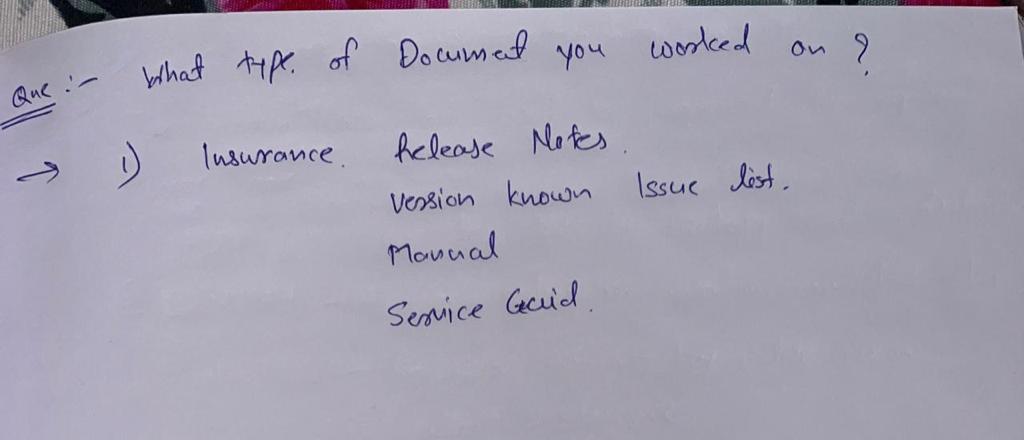 Que :- What type. of Document you worked on ?
→ 1) Insurance. Release Notes.
Version known Issue list.
Manual
Service Guid.